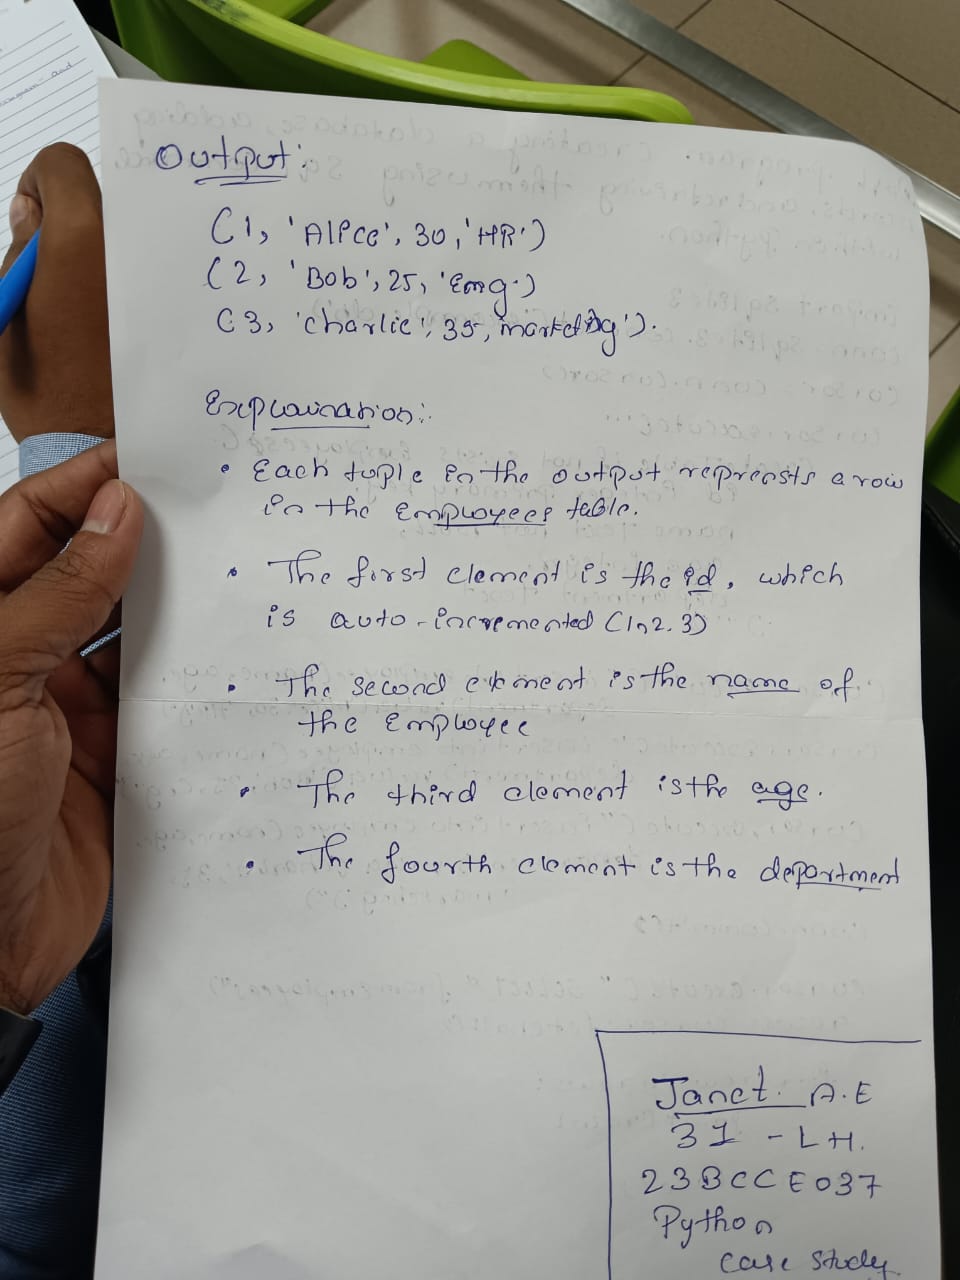 Output:
(1, 'Alice', 30, 'HR')
(2, 'Bob', 25, 'Eng.)
(3, 'charlie', 35, marketing').
Explaination:
• Each tuple in the output represts a row
in the Employees table.
• The first element is the id, which
is auto-incremented (1,2,3)
• The second element is the name of
the Employee
• The third element is the age.
• The fourth element is the department
Janet. A.E
31 - LH.
23BCCE037
Python
Case study